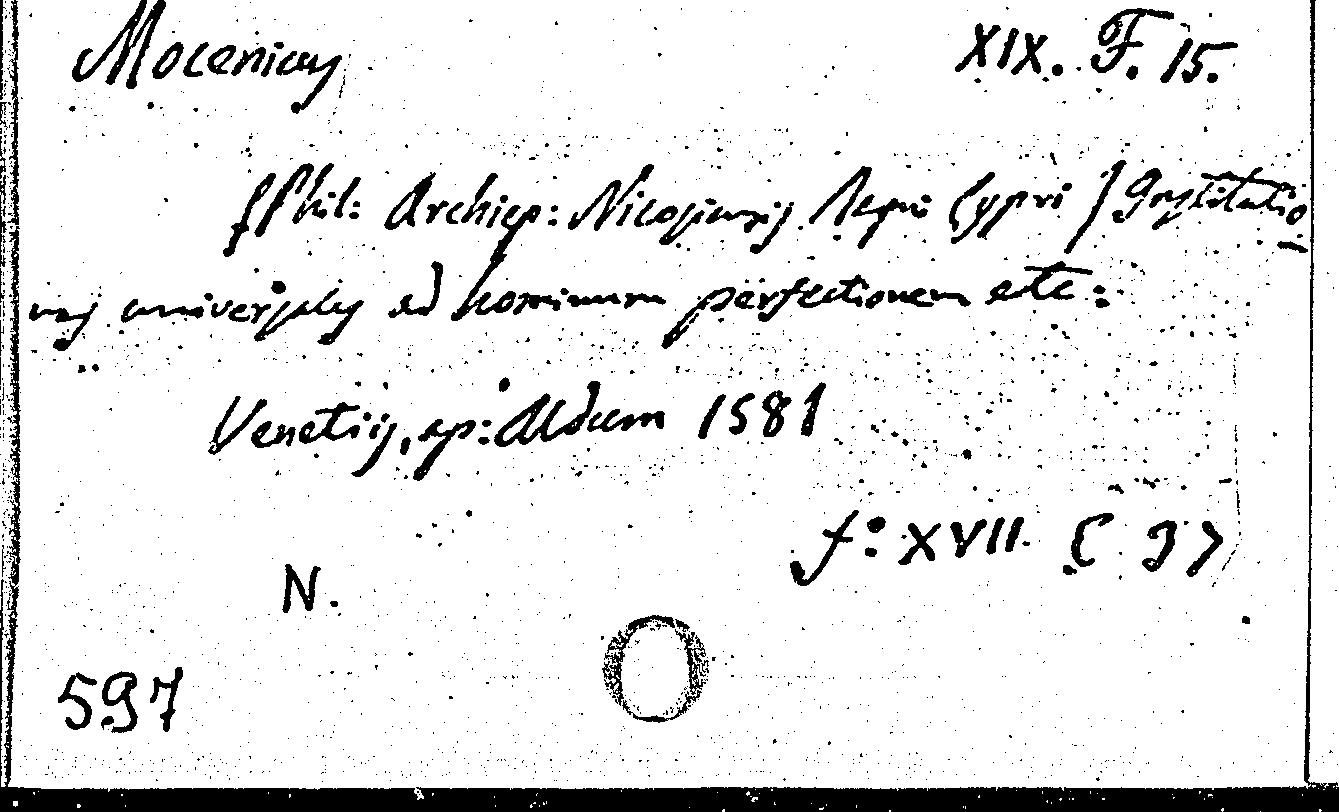 Mocenicus XIX. F. 15.
(Phil: Archiep: Nicosiensis Regni Cypri) Institutio
nes universales ad hominum perfectionem etc:
Venetiis, ap: Aldum 1581
f: XVII C 37
N.
597